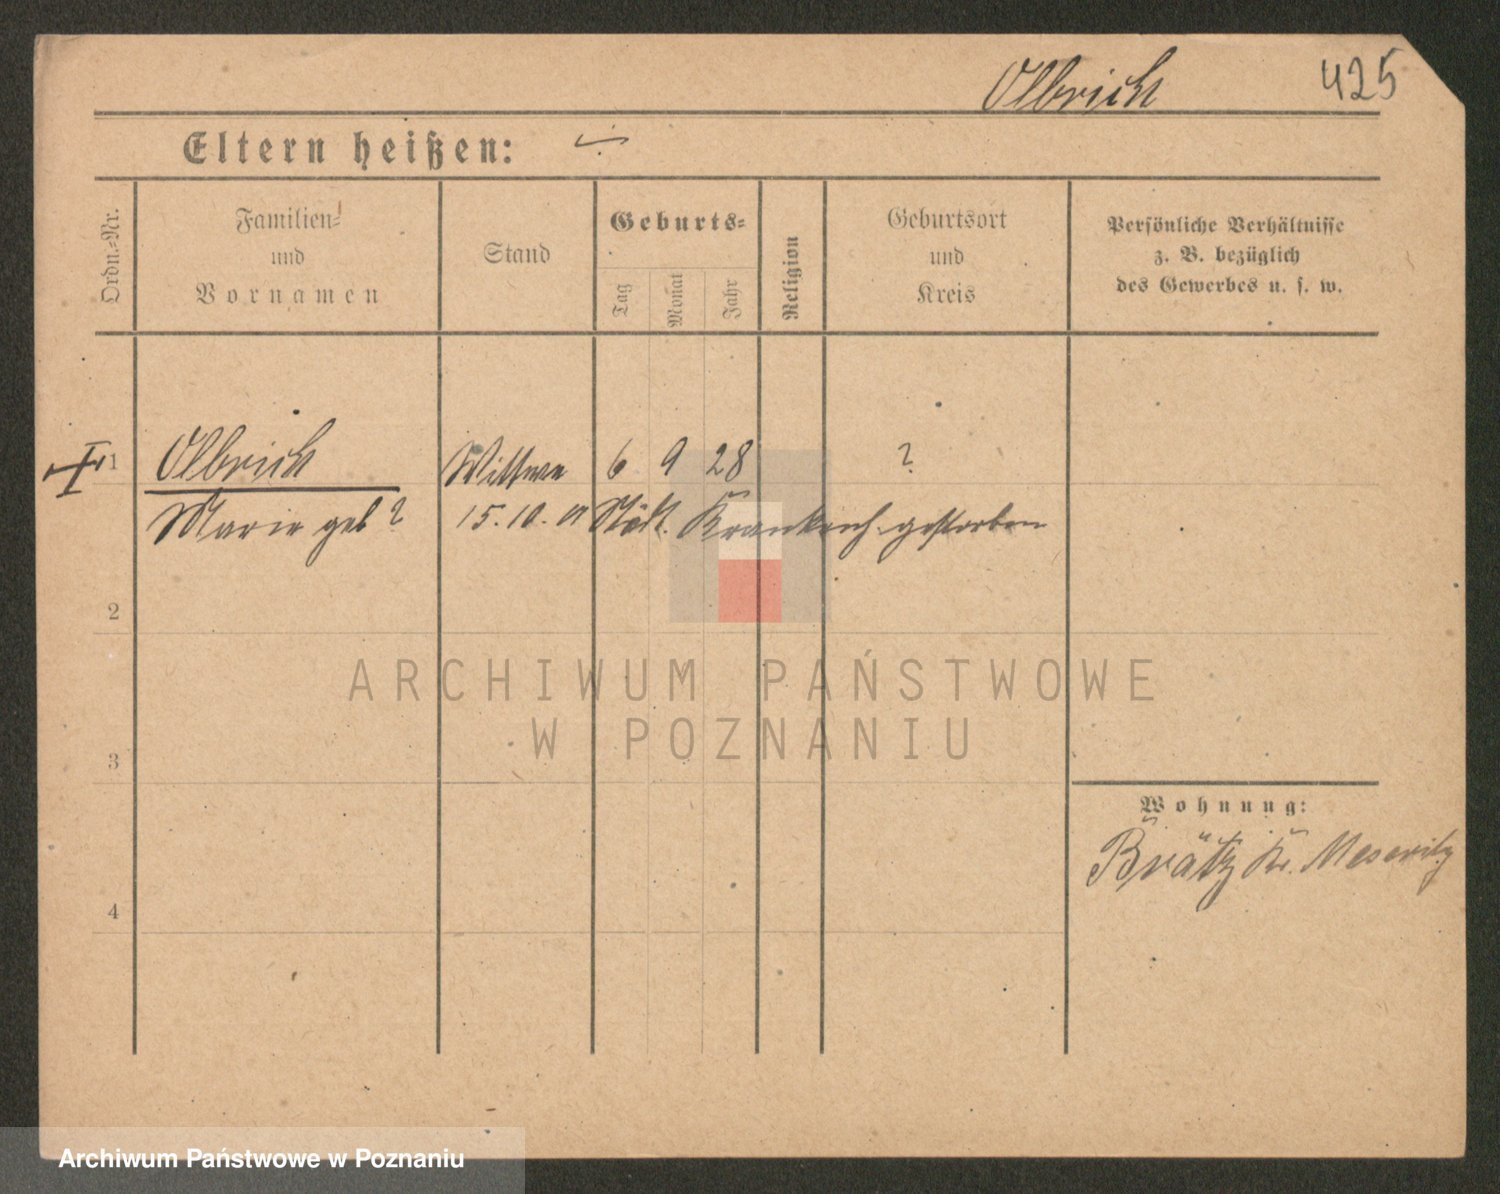 Olbrich 425
Eltern heißen: ÷
Ordn.-Nr.
Familien-
und
Vornamen
Stand
Geburts-
Tag
Monat
Jahr
Religion
Geburtsort
und
Kreis
Persönliche Verhältnisse
z. B. bezüglich
des Gewerbes u. s. w.
1 Olbrich Wittwe 6 9 28 ?
Marie geb ? 15.10. 01 Städt. Krankenh. gestorben
2
ARCHIWUM PAŃSTWOWE
W POZNANIU
3
Wohnung:
Brätz Kr. Meseritz
4
Archiwum Państwowe w Poznaniu